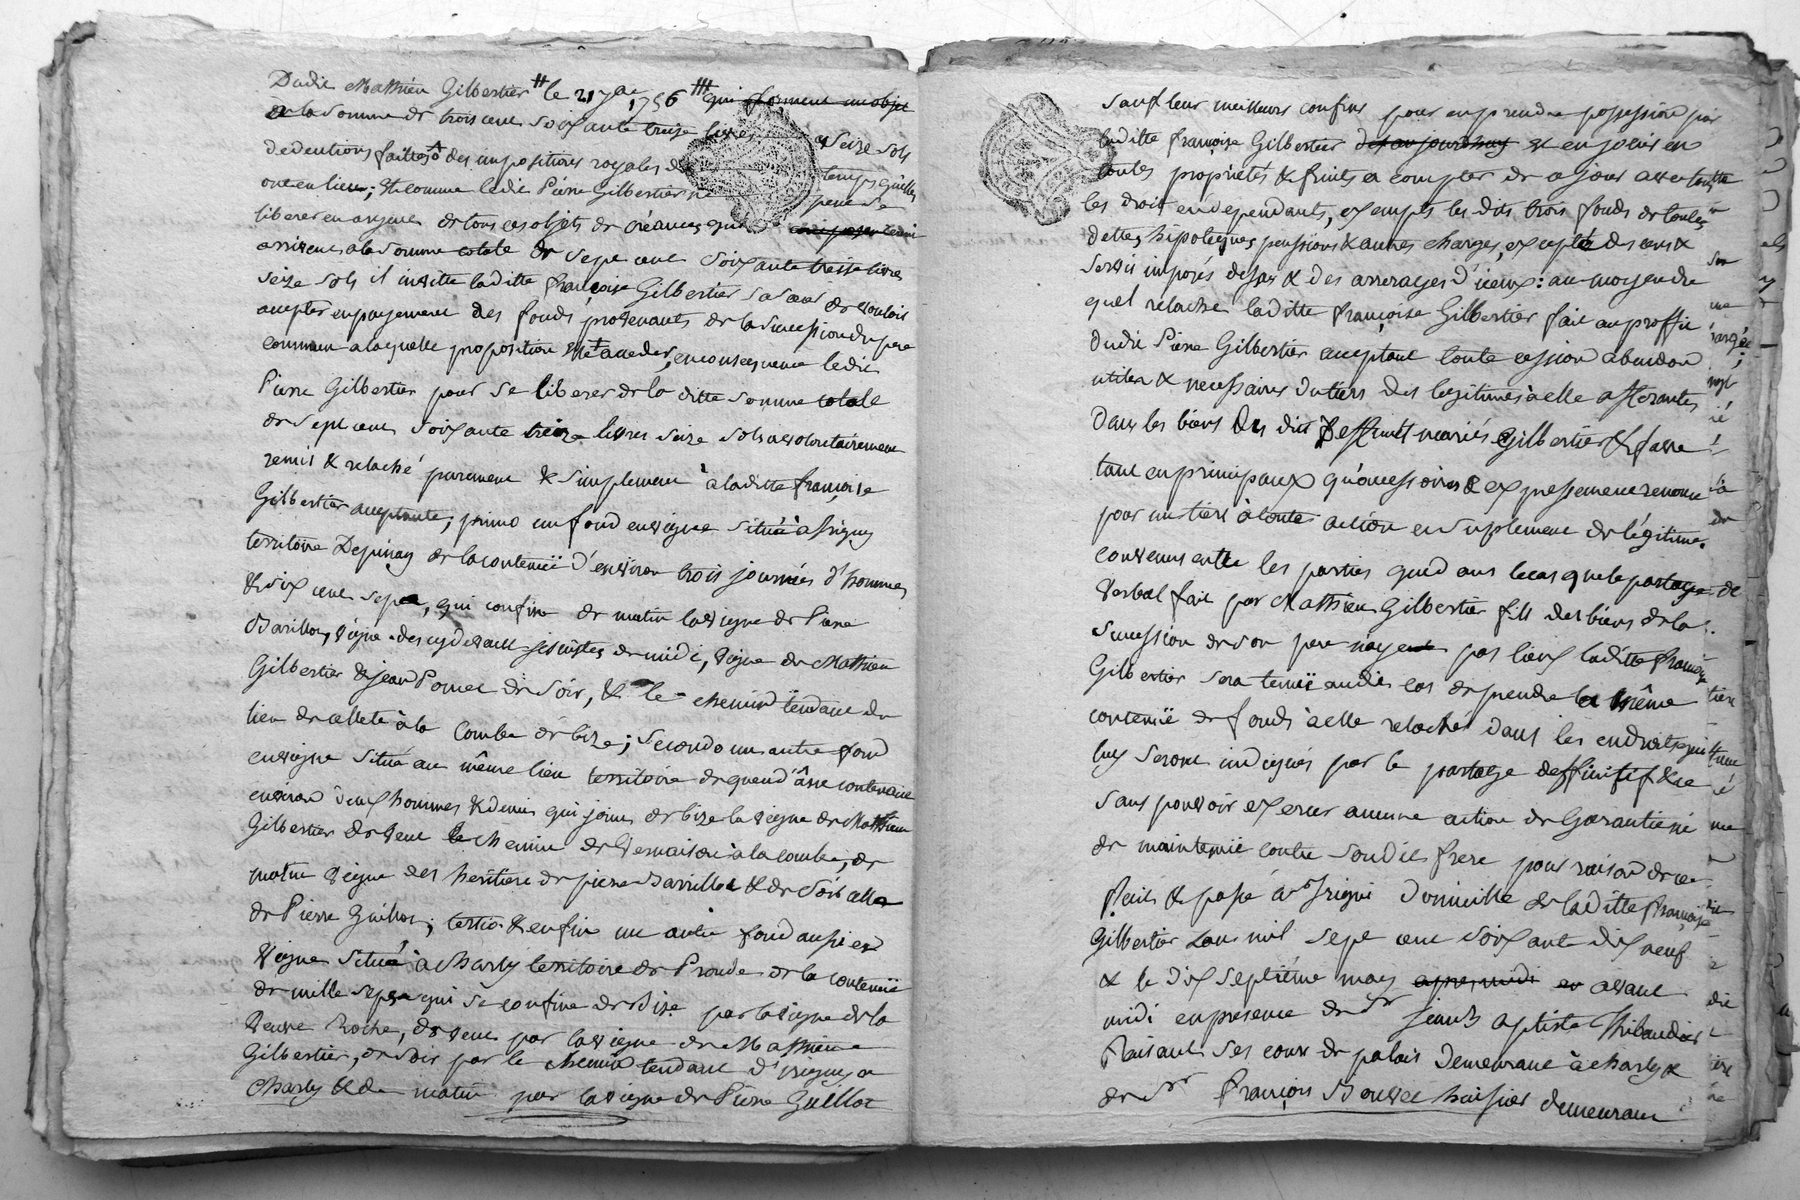 Dudit Mathieu Gilbertier le 21 7bre 1756 qui forment un objet
de la somme de trois cent soixante treize livres seize sols
deductions faittes des impositions royales temps qu'elles
ont eu lieu; Et comme ledit Pierre Gilbertier ne peut se
liberer en argent de tous ces objets de créances qui
arrivent a la somme totale de sept cent soixante treise livres
seize sols il invitte laditte françoise Gilbertier sa sœur de vouloir
accepter en payement des fonds provenants de la succession du pere
commun a laquelle proposition accedes, en consequence ledit
Pierre Gilbertier pour se liberer de la ditte somme totale
de sept cent soixante treize livres seize sols a volontairement
remis & relaché purement & simplement à laditte françoise
Gilbertier acceptante; primo un fond en vigne situé à Irigny
territoire Depinay de la contenüe d'environ trois journées d'hommes
& dix cent sept, qui confine de matin la vigne de Pierre
Barillot, vigne des cydevant jesuistes de midi, vigne de Mathieu
Gilbertier & jean Pomet de soir, & le chemin tendant du
lieu de cellete à la Combe de bize; secondo un autre fond
en vigne situé au même lieu territoire de quend'âne contenant
environ deux hommes & demi qui joint de bize la vigne de Mathieu
Gilbertier de vent le chemin de Vernaison à la combe, de
matin vigne des heritiers de pierre Barrillot & de soir celle
de Pierre Guillot; tertio & enfin un autre fond aussi en
vigne situé à Charly territoire de Proude de la contenüe
de mille sept qui se confine de Bize par la vigne de la
veuve Roche, de vent par la vigne de Mathieu
Gilbertier, de soir par le chemin tendant d'irigny a
Charly & de matin par la vigne de Pierre Guillot
sauf leur meilleurs confins pour en prendre possession par
laditte françoise Gilbertier des aujourdhuy & en jouir en
toutes propriétés & fruits a compter de ce jour avec tous
les droit en dependants, exempts les dits trois fonds de toutes
dettes, hipoteques, pensions & autres charges, excepté des cens &
servis imposés dessus & des arrerages d'iceux: au moyen du
quel relache laditte françoise Gilbertier fait au proffit
dudit Pierre Gilbertier acceptant toute cession abandon
utiles & necessaires du tiers des legitimes à elle afferantes
dans les biens des dits deffunts mariés Gilbertier & favre
tant en principaux qu'accessoires & expressement renonce
pour un tiers à toutes action en suplement de légitime.
convenus entre les parties que dans le cas que le partage
verbal fait par Mathieu Gilbertier fils des biens de la
succession de son pere n'ayent pas lieux laditte françoise
Gilbertier sera tenüe audit cas de prendre la même
contenüe de fonds à elle relachés dans les endroits qui
luy seront indiqués par le partage deffinitif & ce
sans pouvoir exercer aucune action de Garantie ni
de maintenüe contre son dit frere pour raison de ce
Fait & passé à Irigni Domicille de laditte françoise
Gilbertier L'an mil sept cent soixante dix neuf
& le dix septième may apres midi avant
midi en presence de Sr jean Baptiste Thibaudier
Faisant ses cours de palais demeurant à charly &
de Sr François Bouvet huissier demeurant